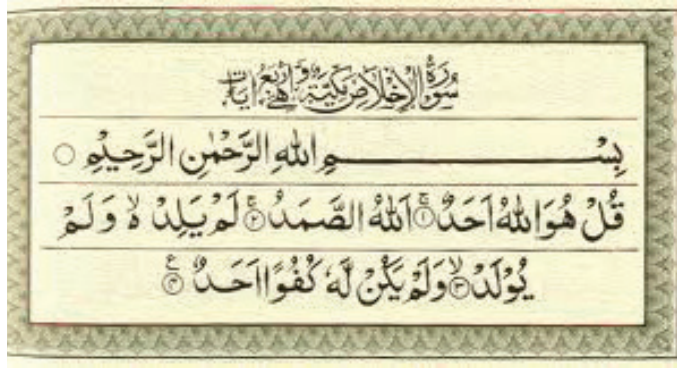 سُوْرَةُ الْاِخْلَاصِ مَكِّيَّةٌ وَّهِيَ اَرْبَعُ اٰيَاتٍ
بِسْمِ اللهِ الرَّحْمٰنِ الرَّحِيْمِ ○
قُلْ هُوَ اللهُ اَحَدٌ ۚ﴿۱﴾ اَللهُ الصَّمَدُ ۚ﴿۲﴾ لَمْ يَلِدْ ۙ وَ لَمْ
يُوْلَدْ ۙ﴿۳﴾ وَلَمْ يَكُنْ لَّهٗ كُفُوًا اَحَدٌ ﴿۴﴾ ع